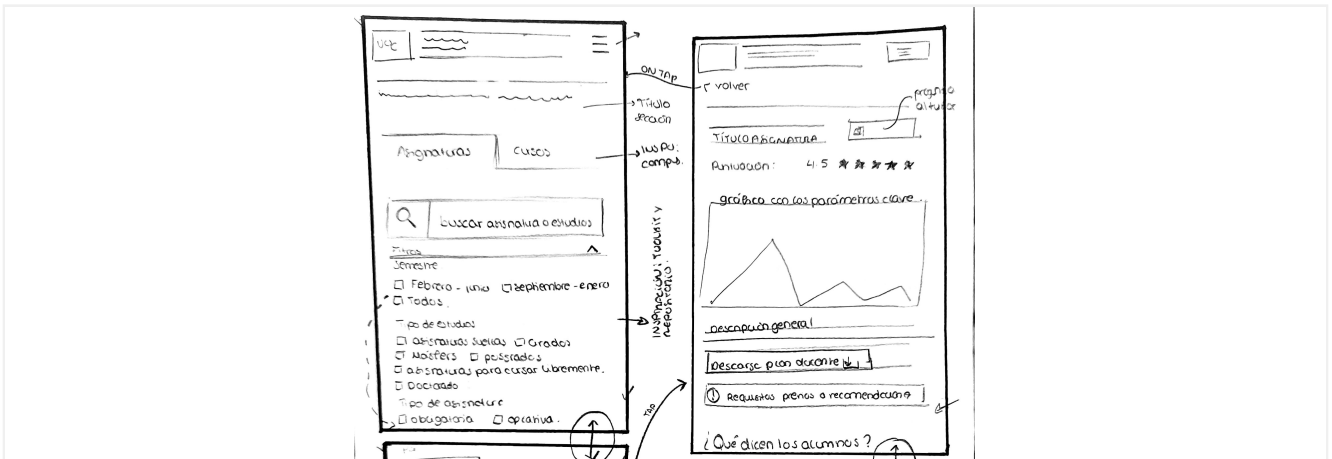 UOC
ON TAP
Título
sección
Asignaturas
Cursos
INSPO:
campus.
buscar asignatura o estudios
Filtros
Semestre
Febrero - junio
Septiembre - enero
Todos.
Tipo de estudios
asignaturas sueltas
Grados
Másters
posgrados
asignaturas para cursar libremente.
Doctorado
Tipo de asignatura
obligatoria
optativa.
INSPIRACIÓN: TOOLKIT Y
REPOSITORIO.
TAP
volver
TÍTULO ASIGNATURA
Puntuación:
4.5
gráfica con los parámetros clave.
Descripción general
Requisitos previos o
¿Qué dicen los alumnos?